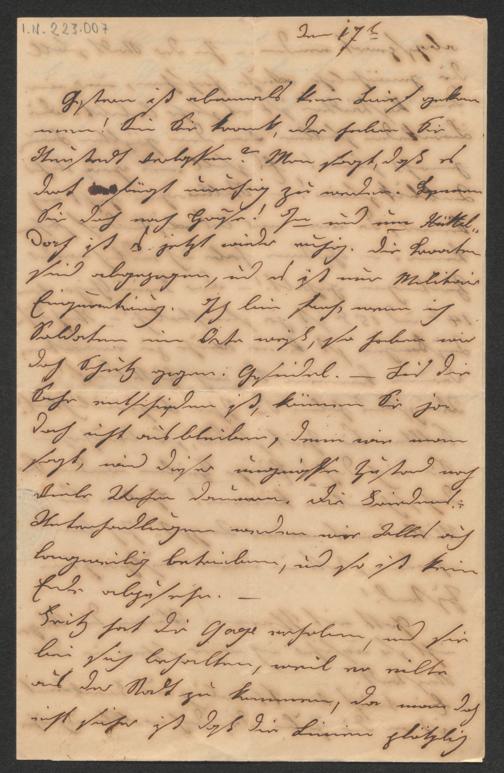 I.N. 223.007
Den 17t
Gestern ist abermals kein Brief gekom
men! Sind Sie krank, oder haben Sie
Neustadt verlassen? Man sagt, daß es
dort anfängt unruhig zu werden. Kommen
Sie doch nach Hause! In und um Hüttel-
dorf ist es jetzt wieder ruhig. Die Kroaten
sind abgezogen, und es ist nur Militair
Einquartirung. Ich bin froh, wenn ich
Soldaten im Orte weiß, so haben wir
doch Schutz gegen Gesindel. — Bis die
Sache entschieden ist, können Sie ja
doch nicht ausbleiben, denn wie man
sagt, wird dieser ungewisse Zustand noch
viele Wochen dauern. Die Friedens-
Unterhandlungen werden wie Alles auch
langweilig betrieben, und so ist kein
Ende abzusehen. —
Fritz hat die Gage erhoben, und sie
bei sich behalten, weil er eilte
aus der Stadt zu kommen, da man doch
nicht sicher ist daß die Linien plötzlich